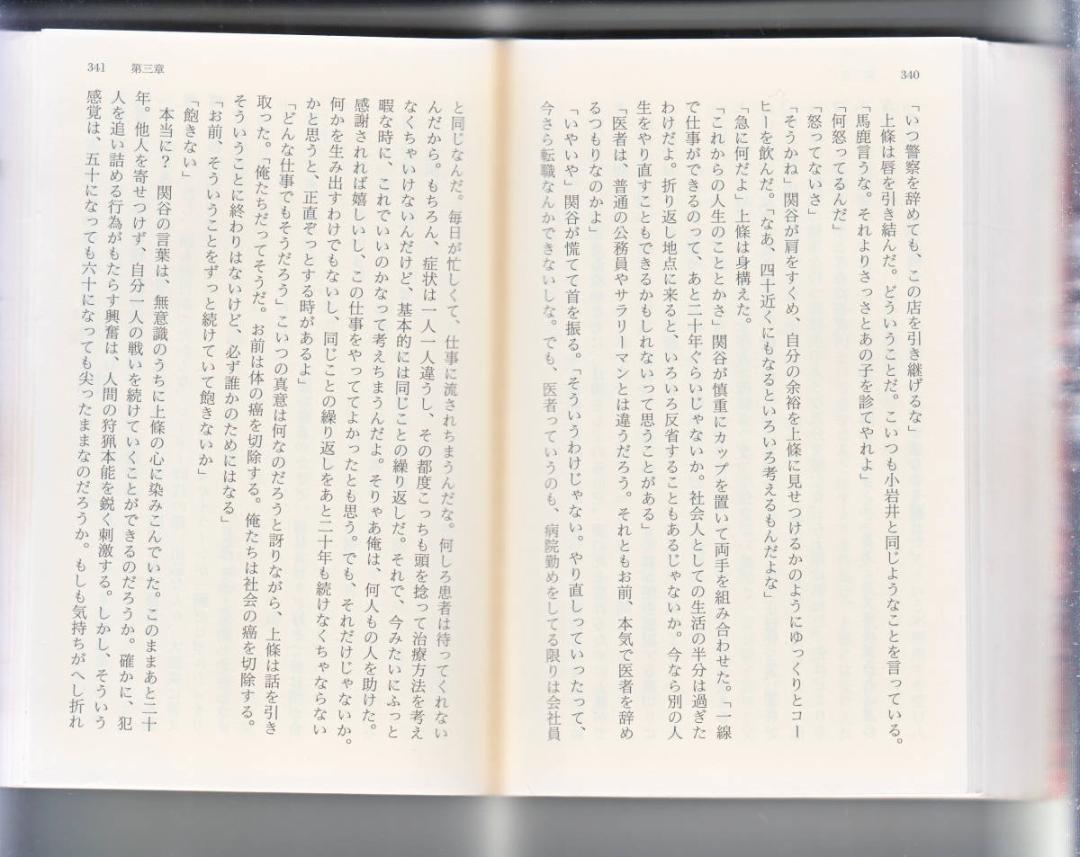 340
「いつ警察を辞めても、この店を引き継げるな」
上條は唇を引き結んだ。どういうことだ。こいつも小岩井と同じようなことを言っている。
「馬鹿言うな。それよりさっさとあの子を診てやれよ」
「何怒ってるんだ」
「怒ってないさ」
「そうかね」関谷が肩をすくめ、自分の余裕を上條に見せつけるかのようにゆっくりとコー
ヒーを飲んだ。「なあ、四十近くにもなるといろいろ考えるもんだよな」
「急に何だよ」上條は身構えた。
「これからの人生のこととかさ」関谷が慎重にカップを置いて両手を組み合わせた。「一線
で仕事ができるのって、あと二十年ぐらいじゃないか。社会人としての生活の半分は過ぎた
わけだよ。折り返し地点に来ると、いろいろ反省することもあるじゃないか。今なら別の人
生をやり直すこともできるかもしれないって思うことがある」
「医者は、普通の公務員やサラリーマンとは違うだろう。それともお前、本気で医者を辞め
るつもりなのかよ」
「いやいや」関谷が慌てて首を振る。「そういうわけじゃない。やり直しっていったって、
今さら転職なんかできないしな。でも、医者っていうのも、病院勤めをしてる限りは会社員
341 第三章
と同じなんだ。毎日が忙しくて、仕事に流されちまうんだな。何しろ患者は待ってくれない
んだから。もちろん、症状は一人一人違うし、その都度こっちも頭を捻って治療方法を考え
なくちゃいけないんだけど、基本的には同じことの繰り返しだ。それで、今みたいにふっと
暇な時に、これでいいのかなって考えちまうんだよ。そりゃあ俺は、何人もの人を助けた。
感謝されれば嬉しいし、この仕事をやっててよかったとも思う。でも、それだけじゃないか。
何かを生み出すわけでもないし、同じことの繰り返しをあと二十年も続けなくちゃならない
かと思うと、正直ぞっとする時があるよ」
「どんな仕事でもそうだろう」こいつの真意は何なのだろうと訝りながら、上條は話を引き
取った。「俺たちだってそうだ。お前は体の癌を切除する。俺たちは社会の癌を切除する。
そういうことに終わりはないけど、必ず誰かのためにはなる」
「お前、そういうことをずっと続けていて飽きないか」
「飽きない」
本当に？　関谷の言葉は、無意識のうちに上條の心に染みこんでいた。このままあと二十
年。他人を寄せつけず、自分一人の戦いを続けていくことができるのだろうか。確かに、犯
人を追い詰める行為がもたらす興奮は、人間の狩猟本能を鋭く刺激する。しかし、そういう
感覚は、五十になっても六十になっても尖ったままなのだろうか。もしも気持ちがへし折れ